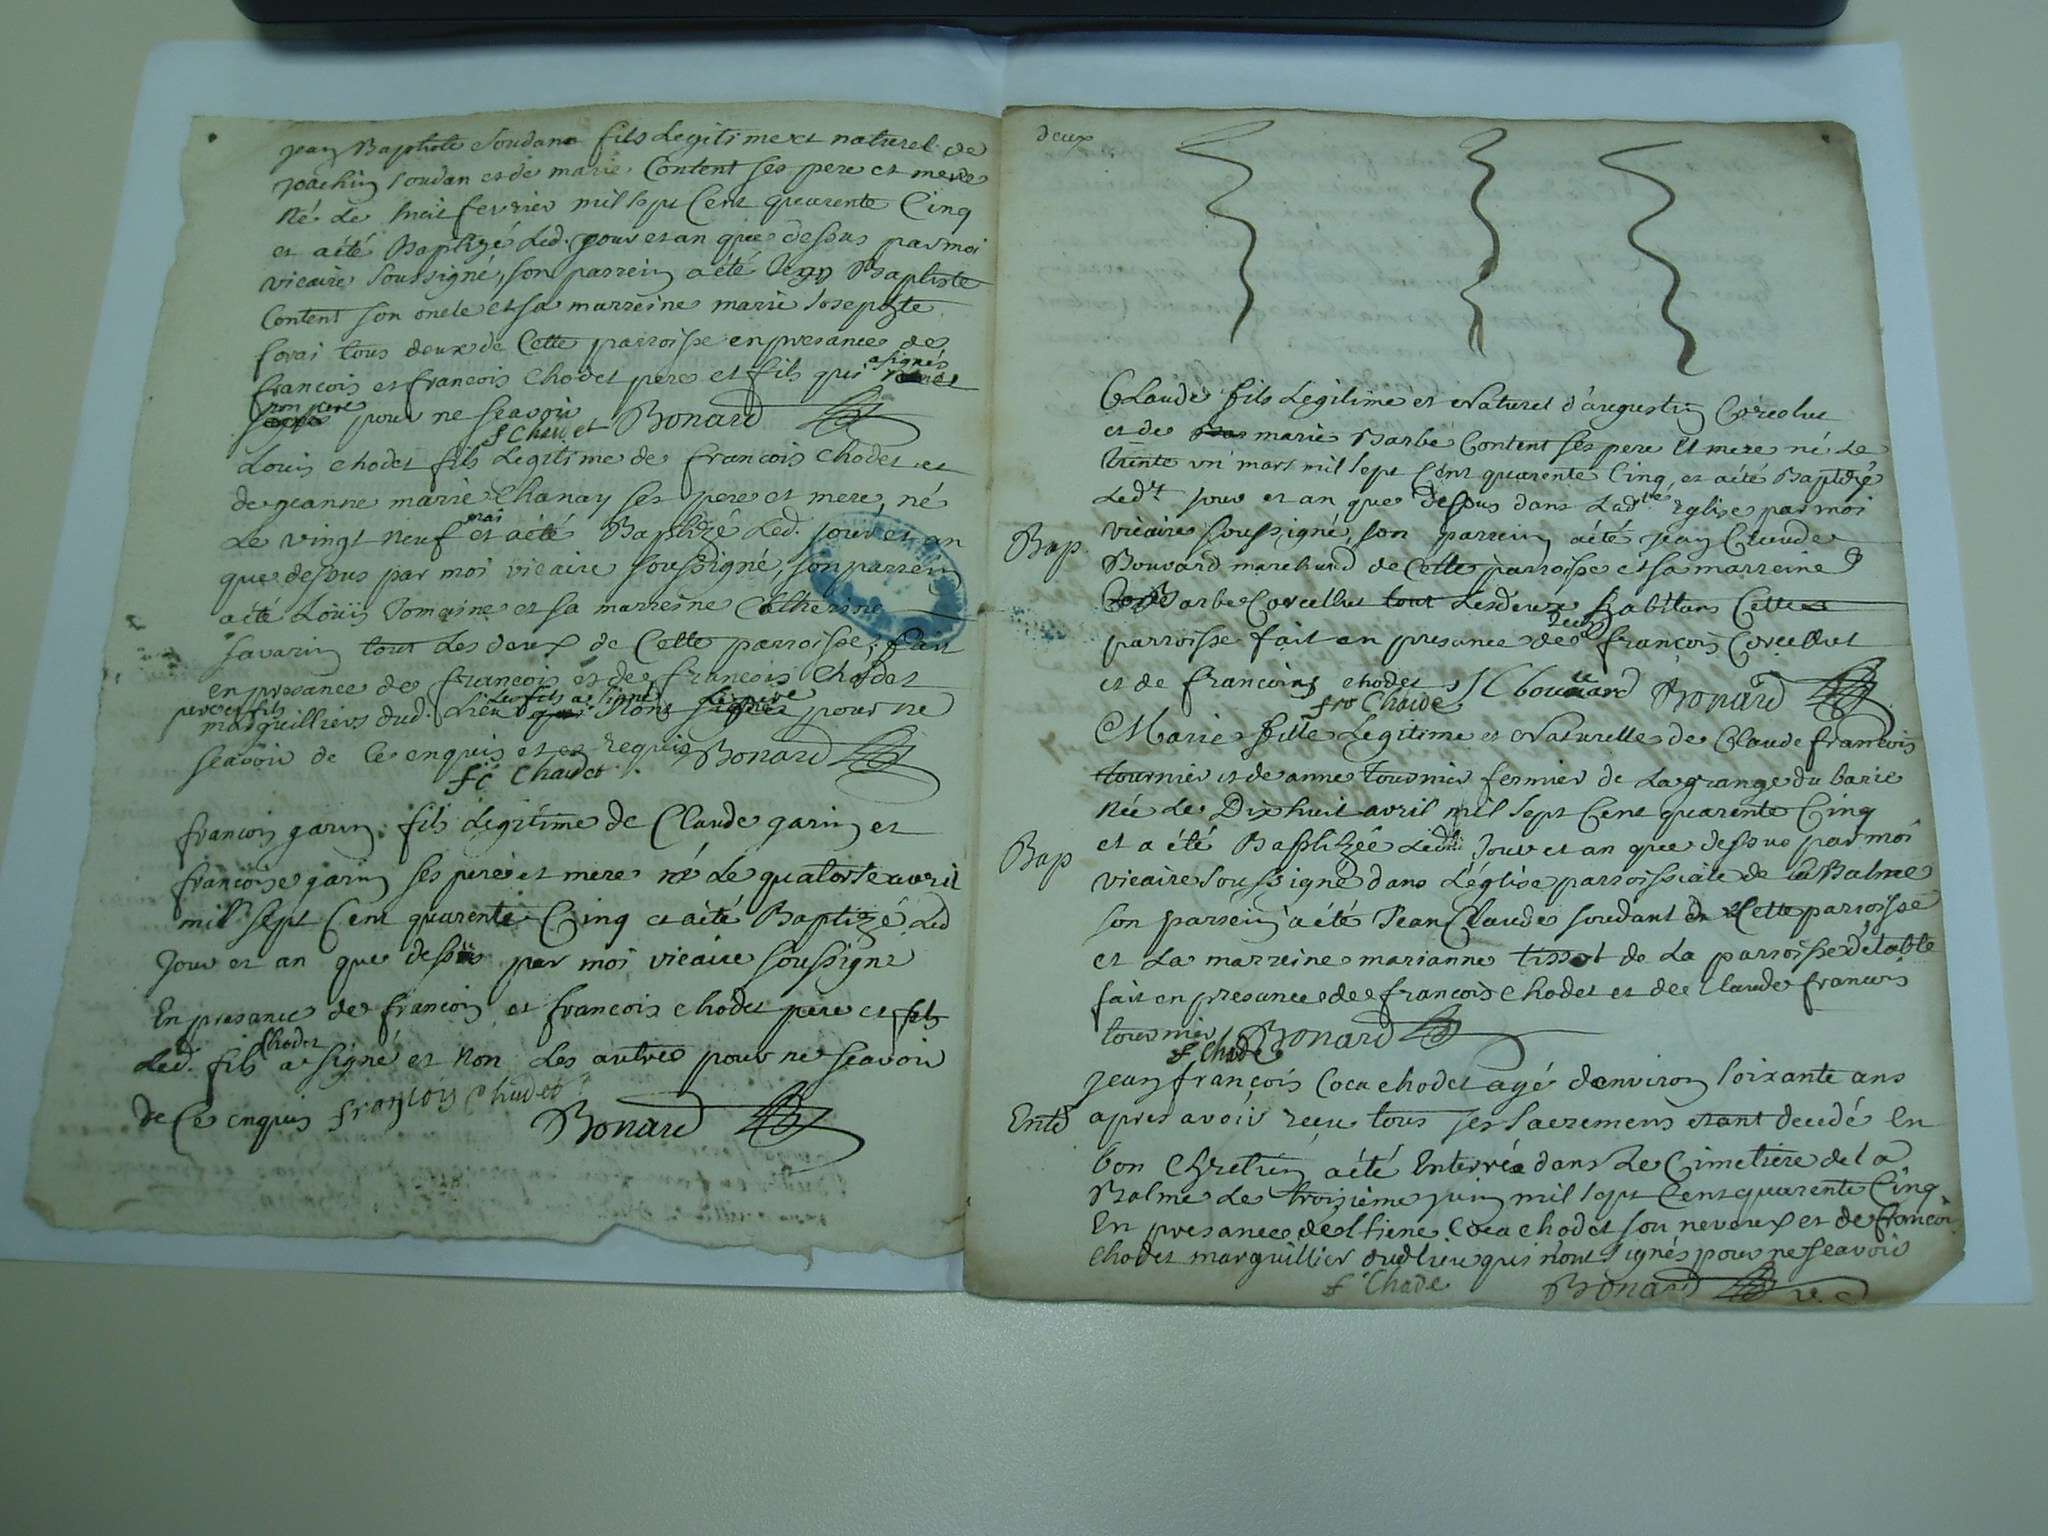 jean Baptiste Soudan fils Legitime et naturel de
joachin Soudan et de marie Content ses pere et mere
né Le huit fevrier mil sept Cent quarente Cinq
et a été Baptizé Led. jour et an que dessus par moi
vicaire soussigné, son parrein a été jean Baptiste
Content son oncle et sa marreine marie Josephte
forai tous deux de Cette parroisse en presance de
francois et francois Chodet pere et fils qui a signés
non pere pour ne scavoir Bonard
f Chaudet
Louis chodet fils Legitime de francois Chodet et
de jeanne marie Chanay ses pere et mere, né
Le vingt neuf mai et a été Baptizé Led. jour et an
que dessus par moi vicaire soussigné, son parrein
a été Louis Tomaine et sa marreine Catherine
Savarin tout Les deux de Cette parroisse, fait
en presance de francois et de francois Chodet
pere et fils Le fils a signé Le pere
marguilliers dud. Lieu non pour ne
scavoir de Ce enquis et requis Bonard
fc Chaudet
francois garin fils Legitime de Claude garin et
francoise garin ses pere et mere né Le quatorse avril
mil sept Cent quarente Cinq et a été Baptizé Led
jour et an que dessus par moi vicaire soussigné
En presance de francois et francois chodet pere et fils
Led. fils Chodet a signé et non Les autres pour ne scavoir
de Ce enquis françois Chudet
Bonard
deux
Claude fils Legitime et Naturel d'augustin Corcelut
et de marie Barbe Content ses pere et mere né Le
trente un mars mil sept Cent quarente Cinq, et a été Baptizé
Ledt jour et an que dessus dans Ladte Eglise par moi
Bap. vicaire soussigné, son parrein a été jean Claude
Bouvard marchand de Cette parroisse et sa marreine
Barbe Corcellut tout Lesdeux habitans Cette
parroisse fait en presance de francois Corcellut
et de francois chodet J C bouvard Bonard
fro Chaide
Marie fille Legitime et Naturelle de Claude francois
tournier et de anne tournier fermier de La grange du barie
Née Le Dixhuit avril mil sept Cent quarente Cinq
Bap et a été Baptizée Ledit Jour et an que dessus par moi
vicaire soussigné dans L'église parroissiale de La Balme
son parrein a été Jean Claude Soudant de Cette parroisse
et La marreine marianne tissot de La parroisse detable
fait en presance de francois chodet et de Claude francois
tournier Bonard
f Chade
jean francois Coca chodet agé denviron soixante ans
Enté apres avoir reçu tous ses sacremens etant decedé En
bon Chretien a été Enterré dans Le Cimetiere de la
Balme Le troizieme juin mil sept Cent quarente Cinq
En presance de Etiene Coca chodet son neveux et de francoi
chodet marguillier dudlieu qui n'ont signés pour ne scavoir
f Chade Bonard